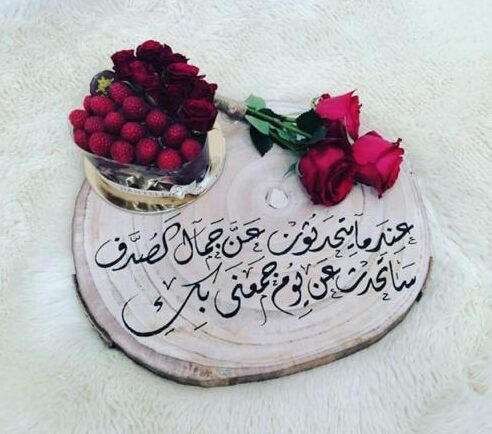 عندما يتحدثون عن جمال الصدف
سأتحدث عن يوم جمعني بكِ